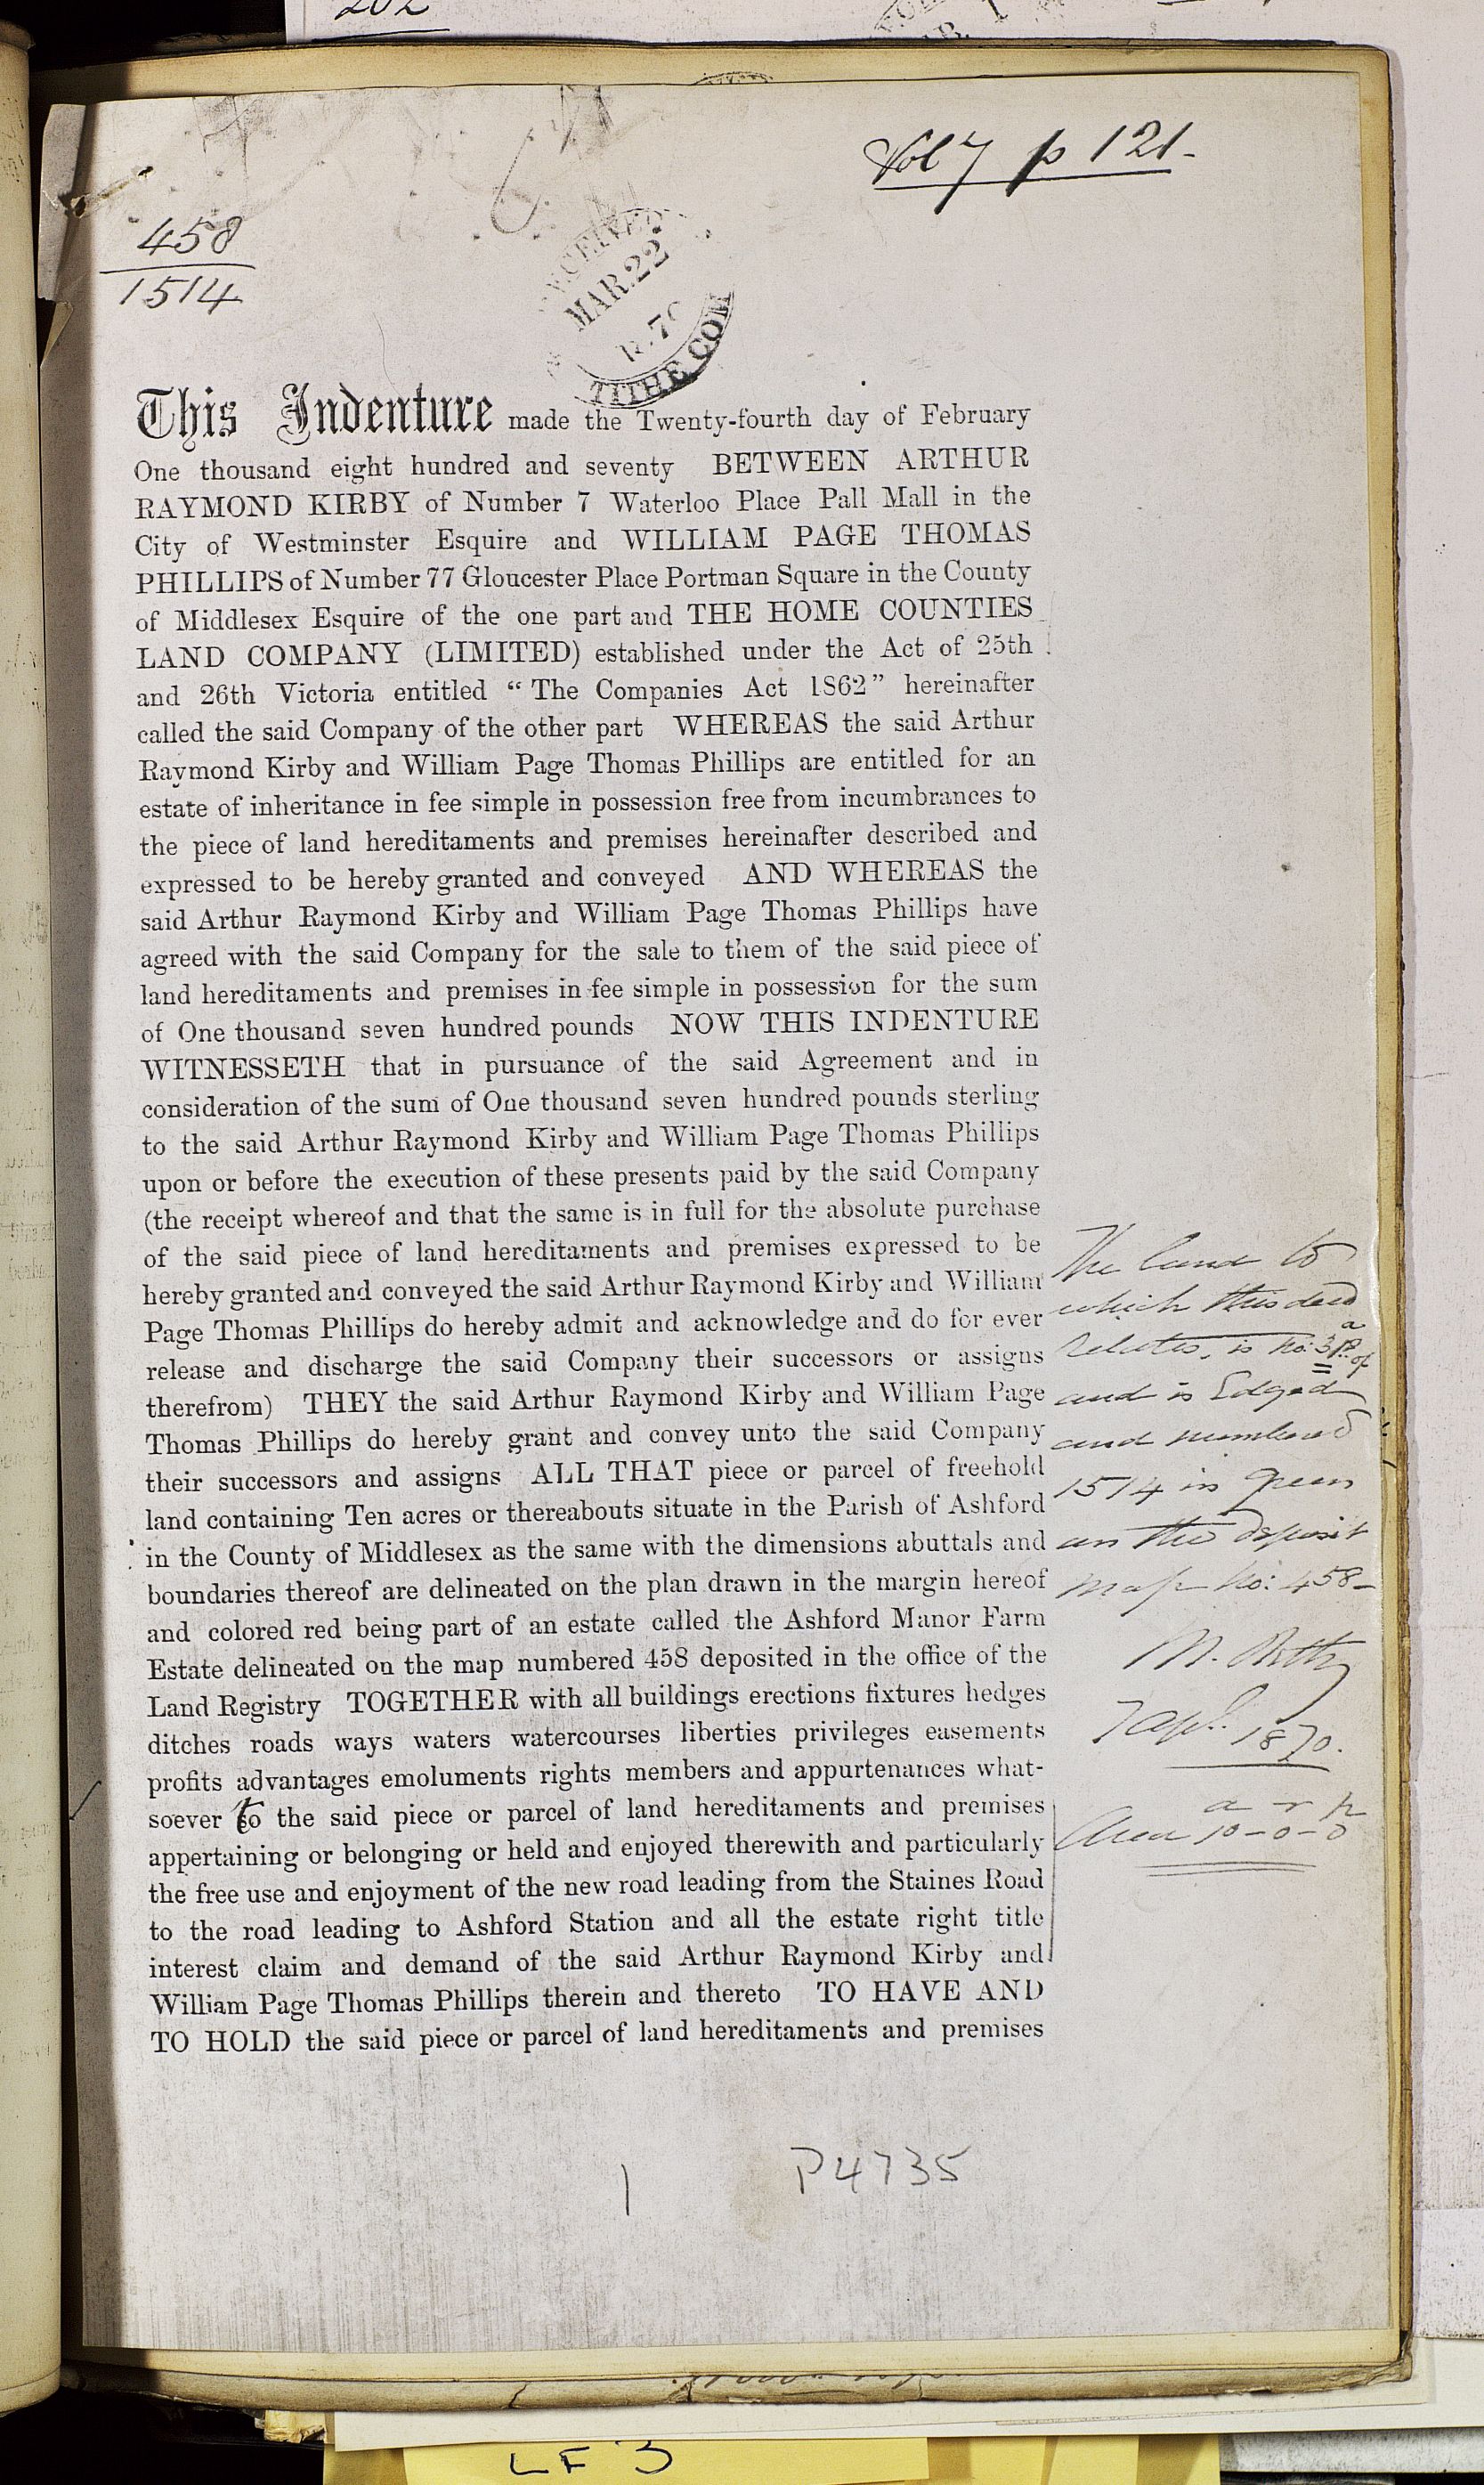 202
Vol 7 p 121-
458
1514
RECEIVED
MAR. 22
TITHE COM
This Indenture made the Twenty-fourth day of February
One thousand eight hundred and seventy BETWEEN ARTHUR
RAYMOND KIRBY of Number 7 Waterloo Place Pall Mall in the
City of Westminster Esquire and WILLIAM PAGE THOMAS
PHILLIPS of Number 77 Gloucester Place Portman Square in the County
of Middlesex Esquire of the one part and THE HOME COUNTIES
LAND COMPANY (LIMITED) established under the Act of 25th
and 26th Victoria entitled “The Companies Act 1862” hereinafter
called the said Company of the other part WHEREAS the said Arthur
Raymond Kirby and William Page Thomas Phillips are entitled for an
estate of inheritance in fee simple in possession free from incumbrances to
the piece of land hereditaments and premises hereinafter described and
expressed to be hereby granted and conveyed AND WHEREAS the
said Arthur Raymond Kirby and William Page Thomas Phillips have
agreed with the said Company for the sale to them of the said piece of
land hereditaments and premises in fee simple in possession for the sum
of One thousand seven hundred pounds NOW THIS INDENTURE
WITNESSETH that in pursuance of the said Agreement and in
consideration of the sum of One thousand seven hundred pounds sterling
to the said Arthur Raymond Kirby and William Page Thomas Phillips
upon or before the execution of these presents paid by the said Company
(the receipt whereof and that the same is in full for the absolute purchase
of the said piece of land hereditaments and premises expressed to be
hereby granted and conveyed the said Arthur Raymond Kirby and William
Page Thomas Phillips do hereby admit and acknowledge and do for ever
release and discharge the said Company their successors or assigns
therefrom) THEY the said Arthur Raymond Kirby and William Page
Thomas Phillips do hereby grant and convey unto the said Company
their successors and assigns ALL THAT piece or parcel of freehold
land containing Ten acres or thereabouts situate in the Parish of Ashford
in the County of Middlesex as the same with the dimensions abuttals and
boundaries thereof are delineated on the plan drawn in the margin hereof
and colored red being part of an estate called the Ashford Manor Farm
Estate delineated on the map numbered 458 deposited in the office of the
Land Registry TOGETHER with all buildings erections fixtures hedges
ditches roads ways waters watercourses liberties privileges easements
profits advantages emoluments rights members and appurtenances what-
soever to the said piece or parcel of land hereditaments and premises
appertaining or belonging or held and enjoyed therewith and particularly
the free use and enjoyment of the new road leading from the Staines Road
to the road leading to Ashford Station and all the estate right title
interest claim and demand of the said Arthur Raymond Kirby and
William Page Thomas Phillips therein and thereto TO HAVE AND
TO HOLD the said piece or parcel of land hereditaments and premises
The land to
which this deed
relates, is No: 3
and is Edged
and numbered
1514 in green
on the deposit
map No: 458-
M.
7 Apl. 1870.
a r p
Area 10-0-0
1
P4735
LF 3